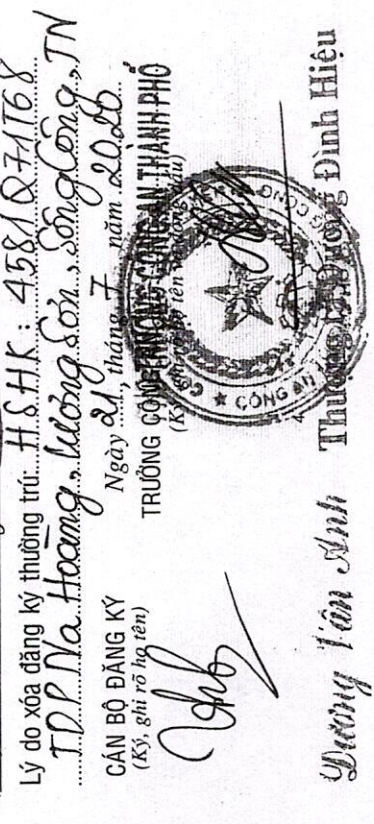 Lý do xóa đăng ký thường trú: HSHK: 4581Q71T68
TDP Na Hoàng, Lương Sơn, Sông Công, TN
Ngày 21, tháng 7 năm 2020
CÁN BỘ ĐĂNG KÝ
(Ký, ghi rõ họ tên)
TRƯỞNG CÔNG AN
TRƯỞNG CÔNG AN THÀNH PHỐ
CÔNG AN
Dương Vân Anh
Thượng tá Dương Đình Hiệu